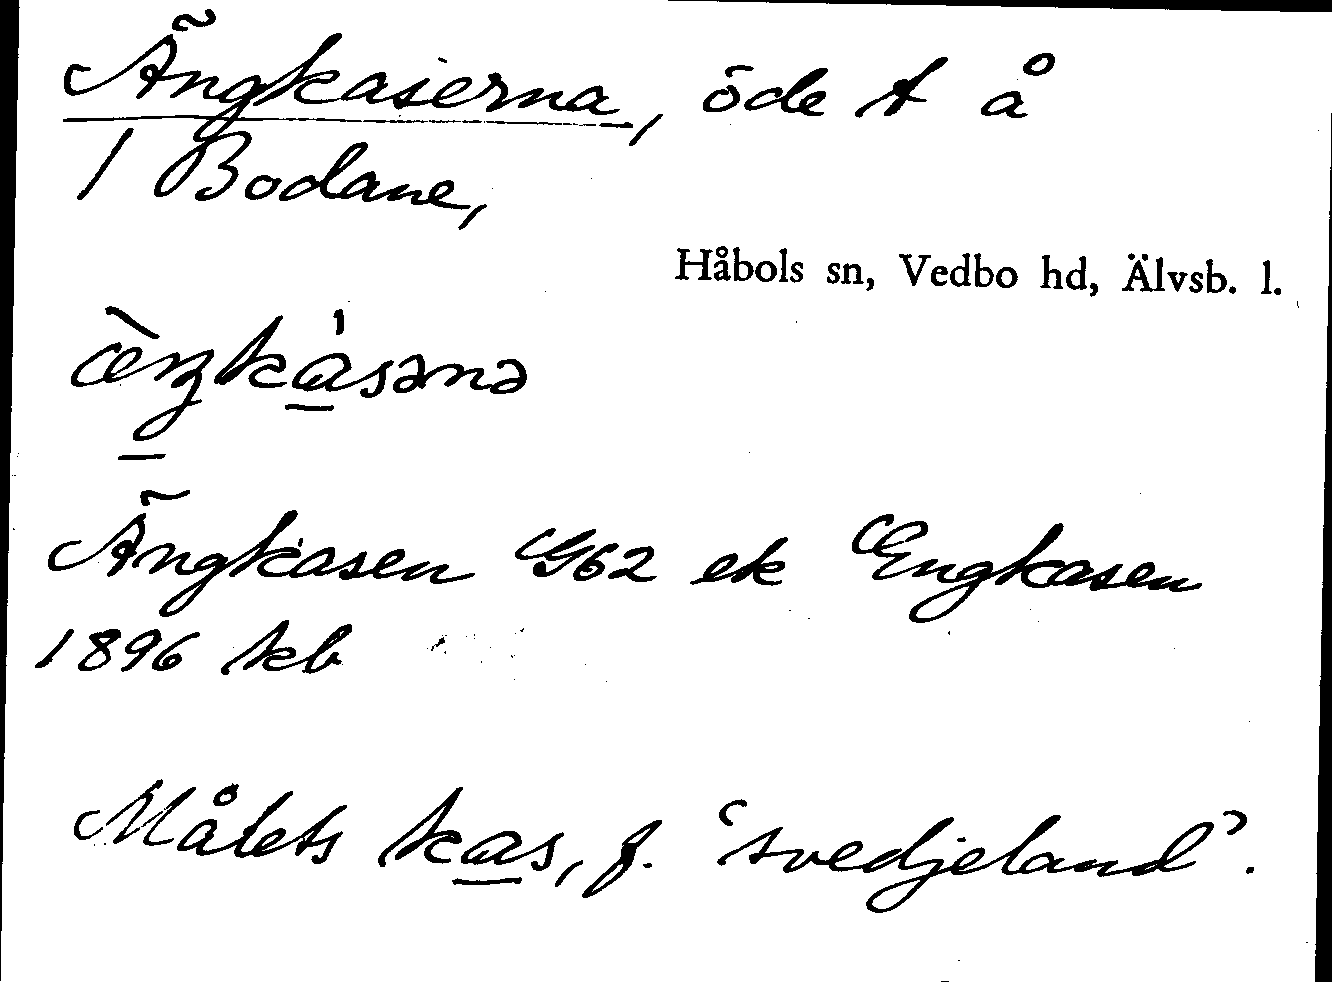 Ängkaserna, öde t å
1 Bodane,
Håbols sn, Vedbo hd, Älvsb. l.
æ̀ŋka̍sənə
Ängkasen G62 ek Engkasen
1896 kb
Målets kas, f. ‘svedjeland’.